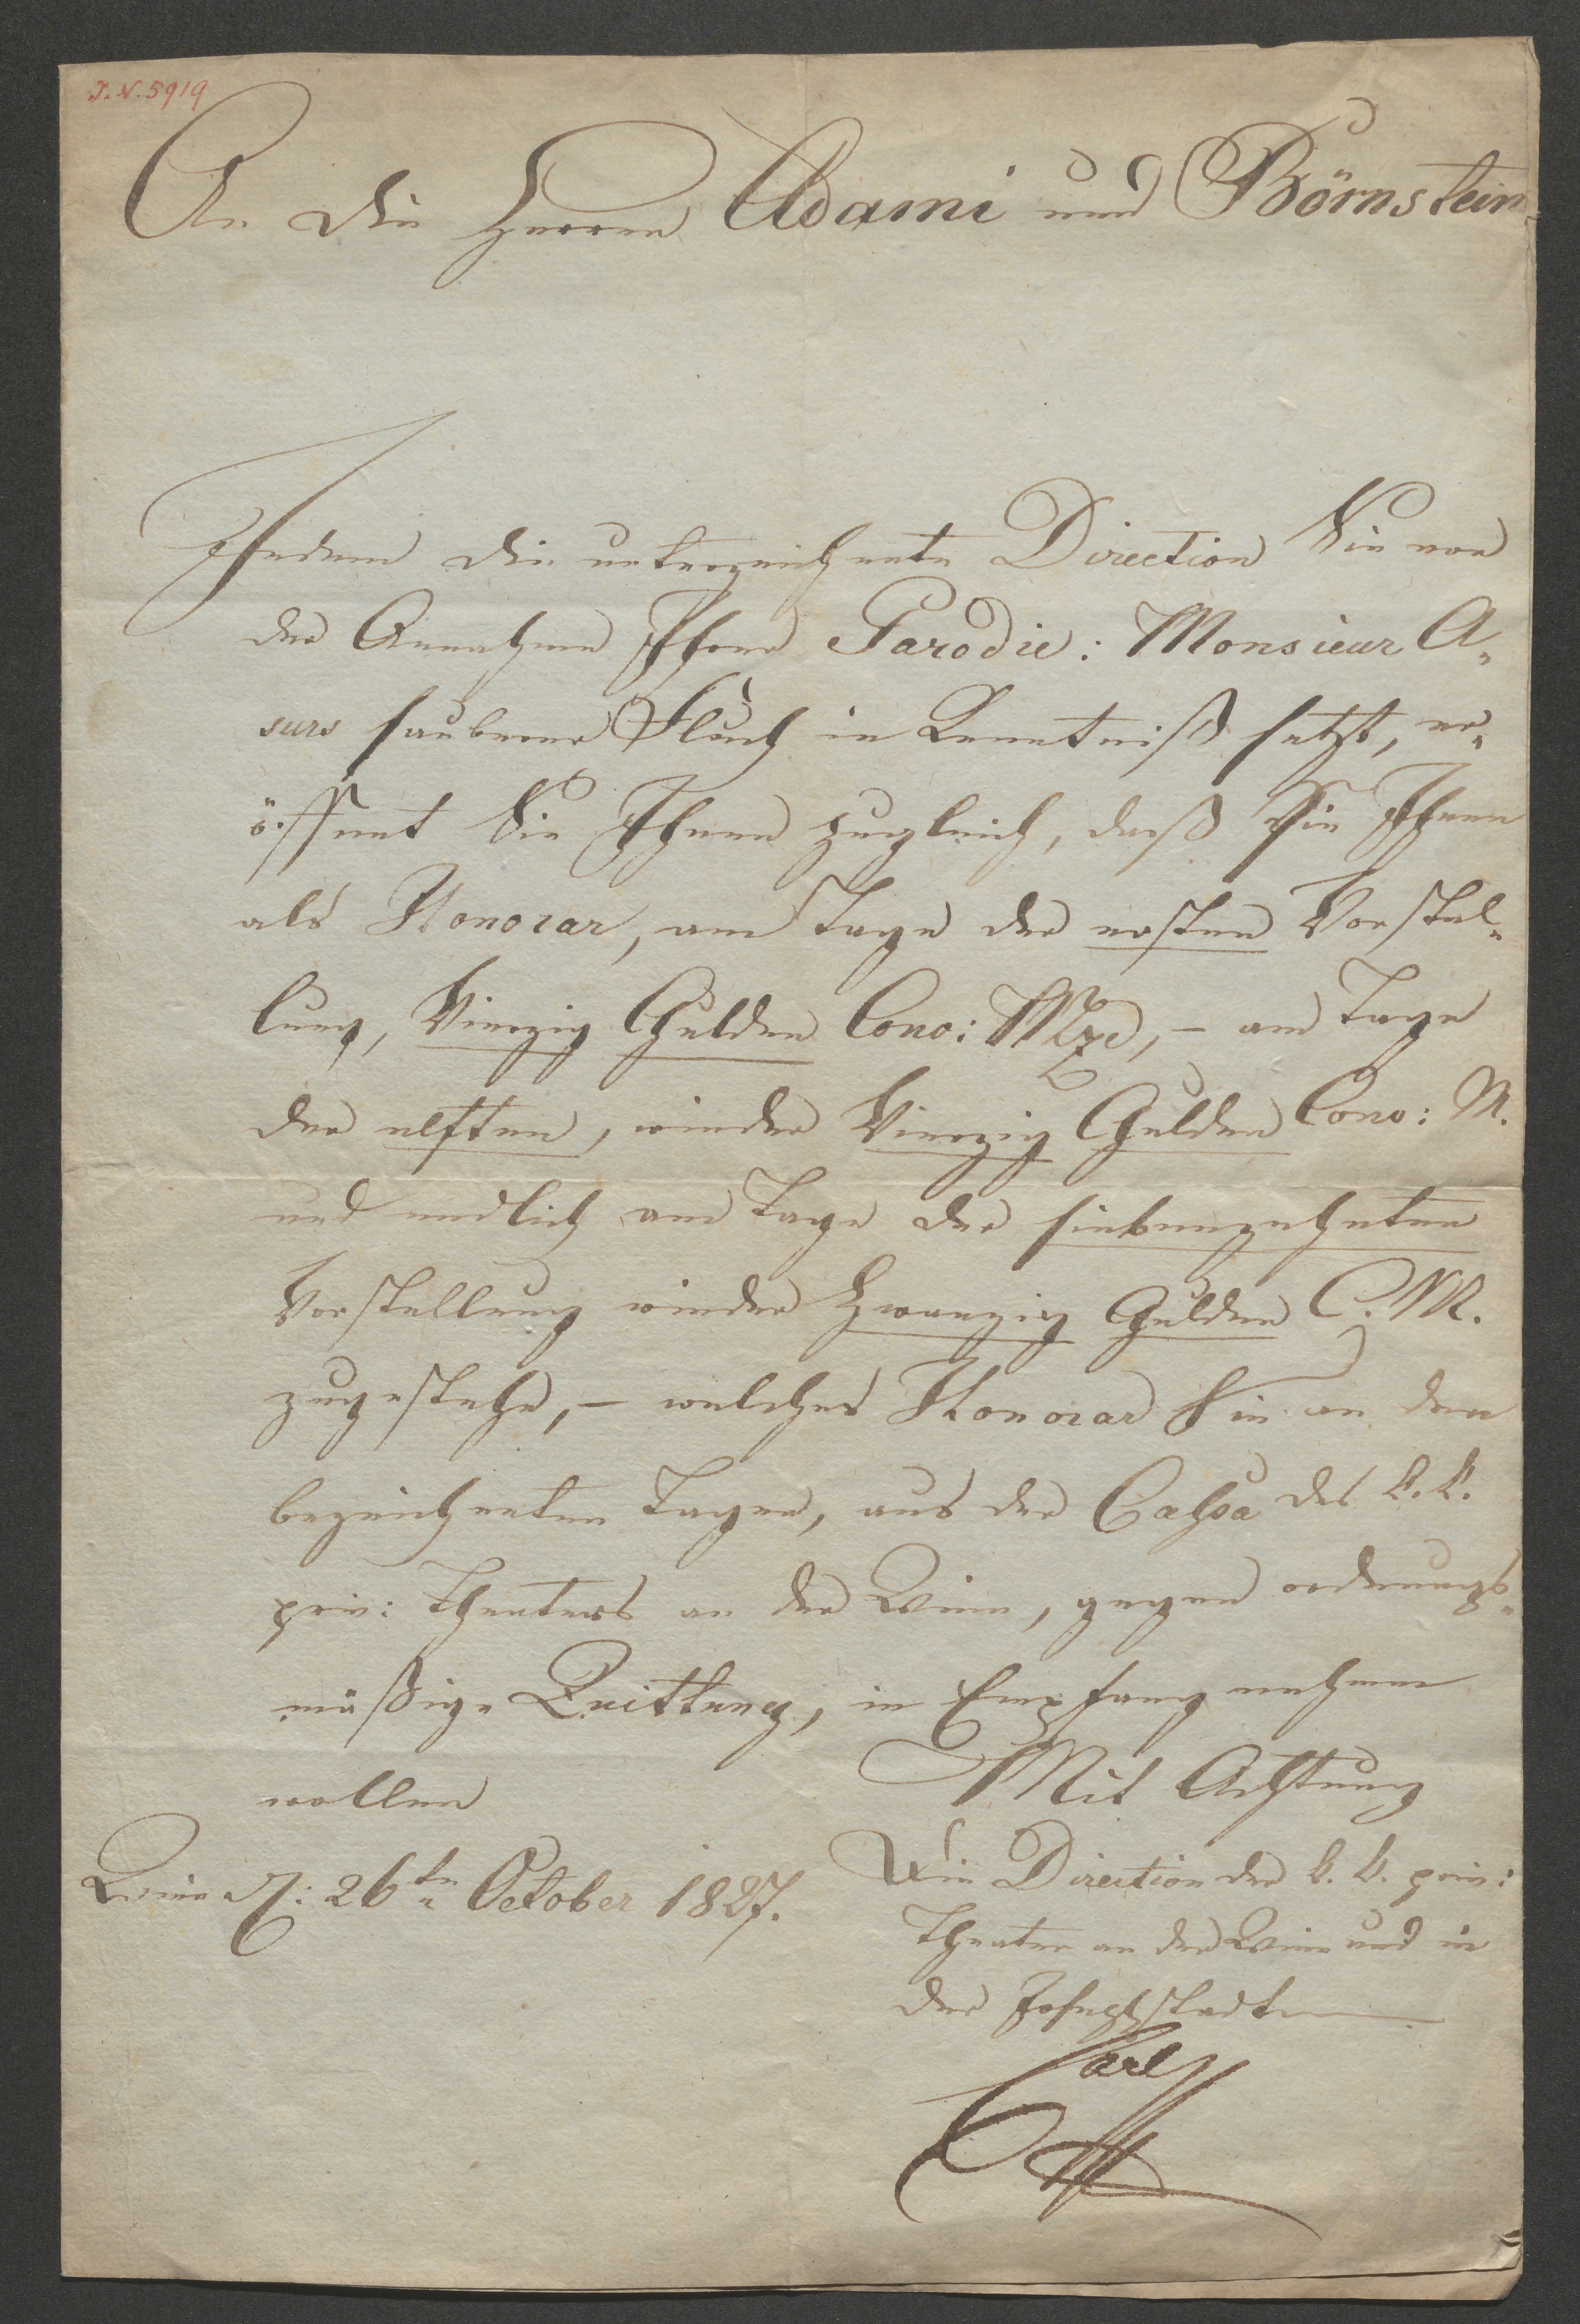 I. N. 5919
An die Herren Adami und Börnstein.
Indem die unterzeichnete Direction Sie von
der Annahme Ihrer Parodie: Monsieur A„
surs sauberer Fluch in Kenntniß setzt, er„
öffnet Sie Ihnen zugleich, daß Sie Ihnen
als Honorar, am Tage der ersten Vorstel„
lung, Vierzig Gulden Conv: Mze, – am Tage
der elften, wieder Vierzig Gulden Conv: M.
und endlich am Tage der siebenzehnten
Vorstellung wieder Zwanzig Gulden C. M.
zugestehe, – welches Honorar Sie an den
bezeichneten Tagen, aus der Cassa des k. k.
priv: Theaters an der Wien, gegen ordnungs„
mäßige Quittung, in Empfang nehmen
wollen
Mit Achtung
Wien d: 26tn October 1827.
Die Direction der k. k. priv:
Theater an der Wien und in
der Josephstadt
Carl